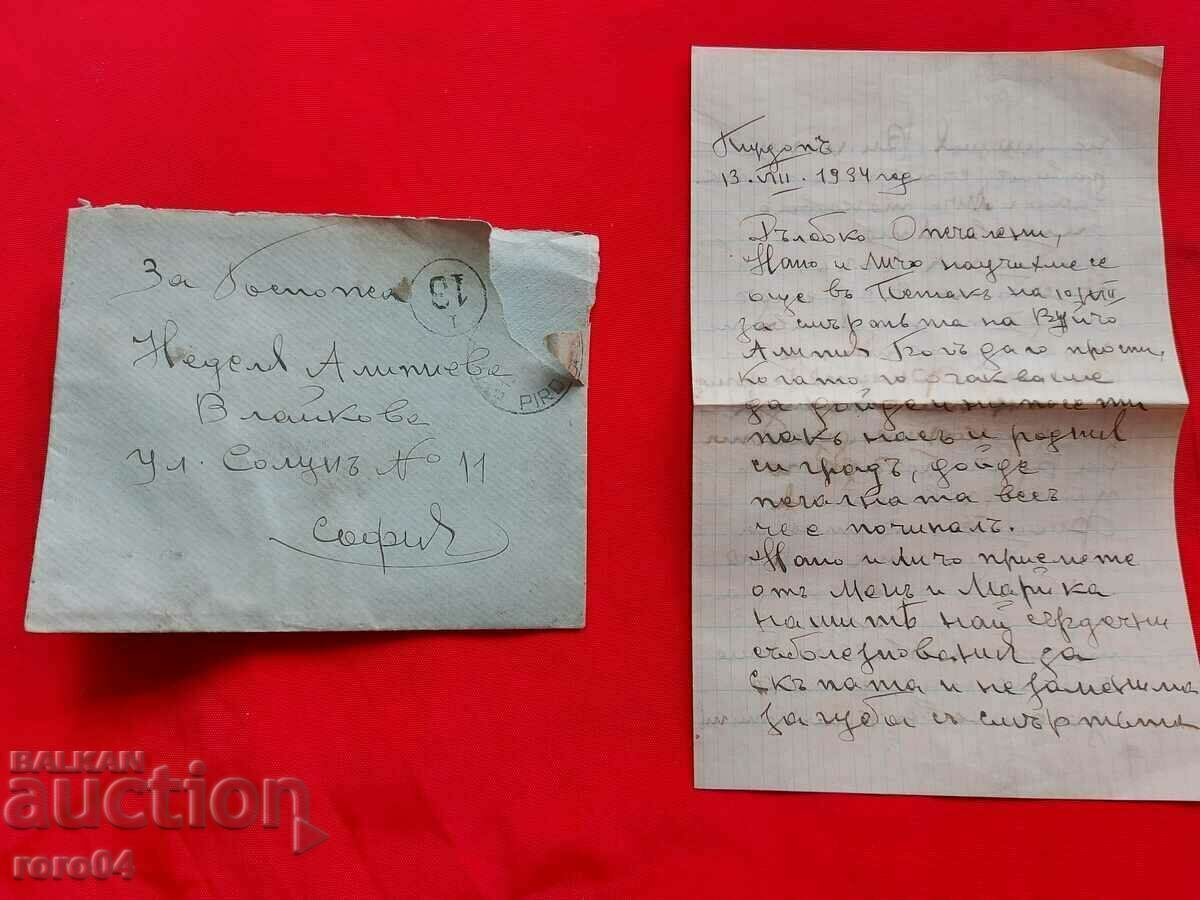 За Госпожа
Неделя Алипиева
Влайкова
ул. Солунъ № 11
София
19
PIRD
Пирдопъ
13.VIII.1934 год
Дълбоко Опечалени,
и Личо научихме се
още въ Петакъ на 10/VIII
за смъртьта на Вуйчо
Алипия Богъ да го прости,
когато го очаквахме
да дойде и ни посети
пакъ насъ и родния
си градъ, дойде
печалната весъ
че е починалъ.
и Личо приемете
отъ Менъ и Марийка
нашитѣ най сърдечни
съболезнования за
скъпата и незаменима
загуба съ смъртьта
BALKAN
auction
roro04